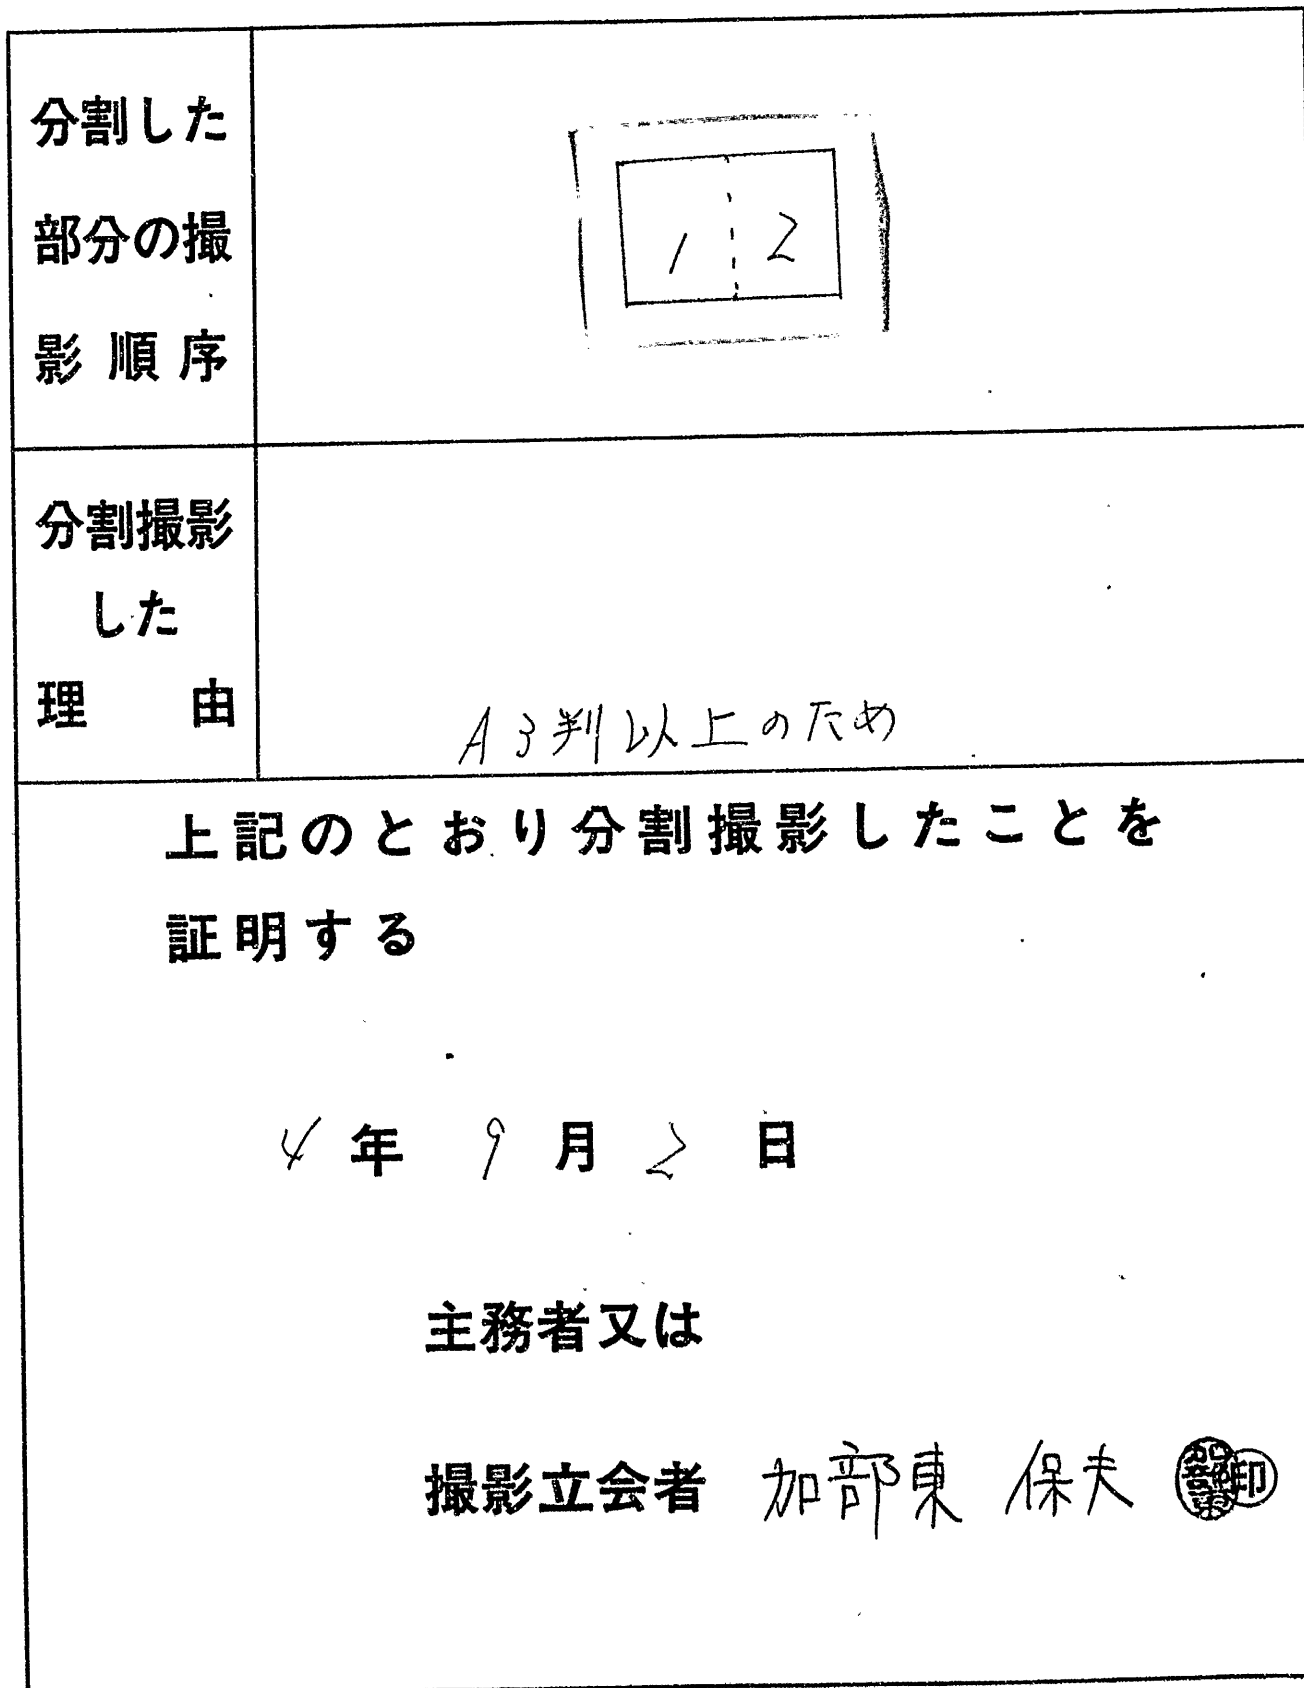 分割した
部分の撮
影順序
1 2
分割撮影
した
理由
A3判以上のため
上記のとおり分割撮影したことを
証明する
4年 9月 2日
主務者又は
撮影立会者 加部東 保夫 加部東 印